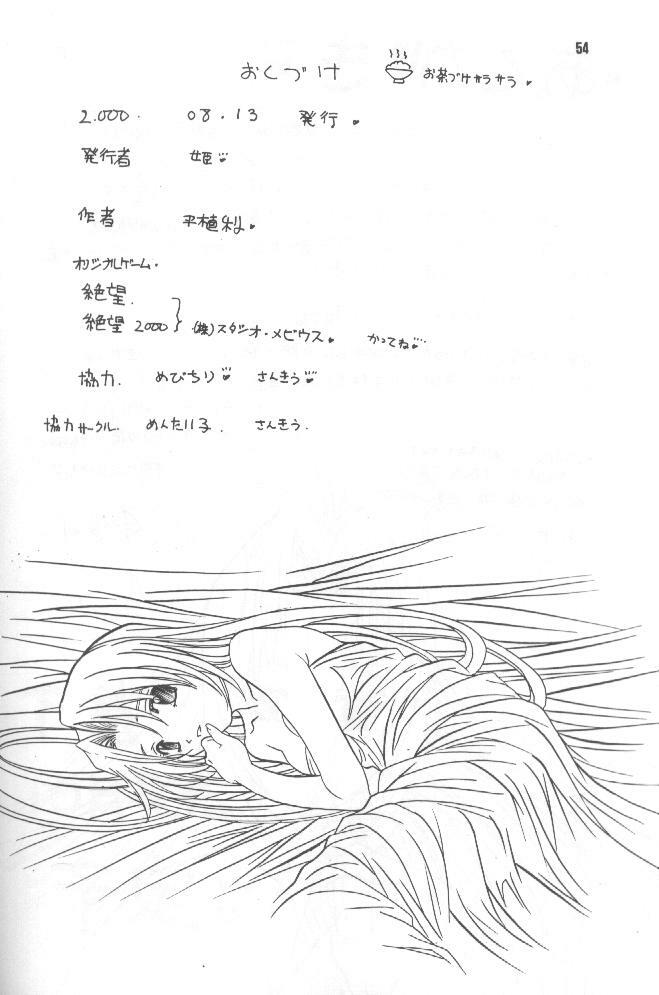 54
おくづけ お茶づけサラサラ
2.000. 08.13 発行
発行者 姫
作者 平植利
オリジナルゲーム.
絶望.
絶望 2000 (株)スタジオ・メビウス。 かってね
協力. めびちり さんきう
協力サークル. めんたい子. さんきう.